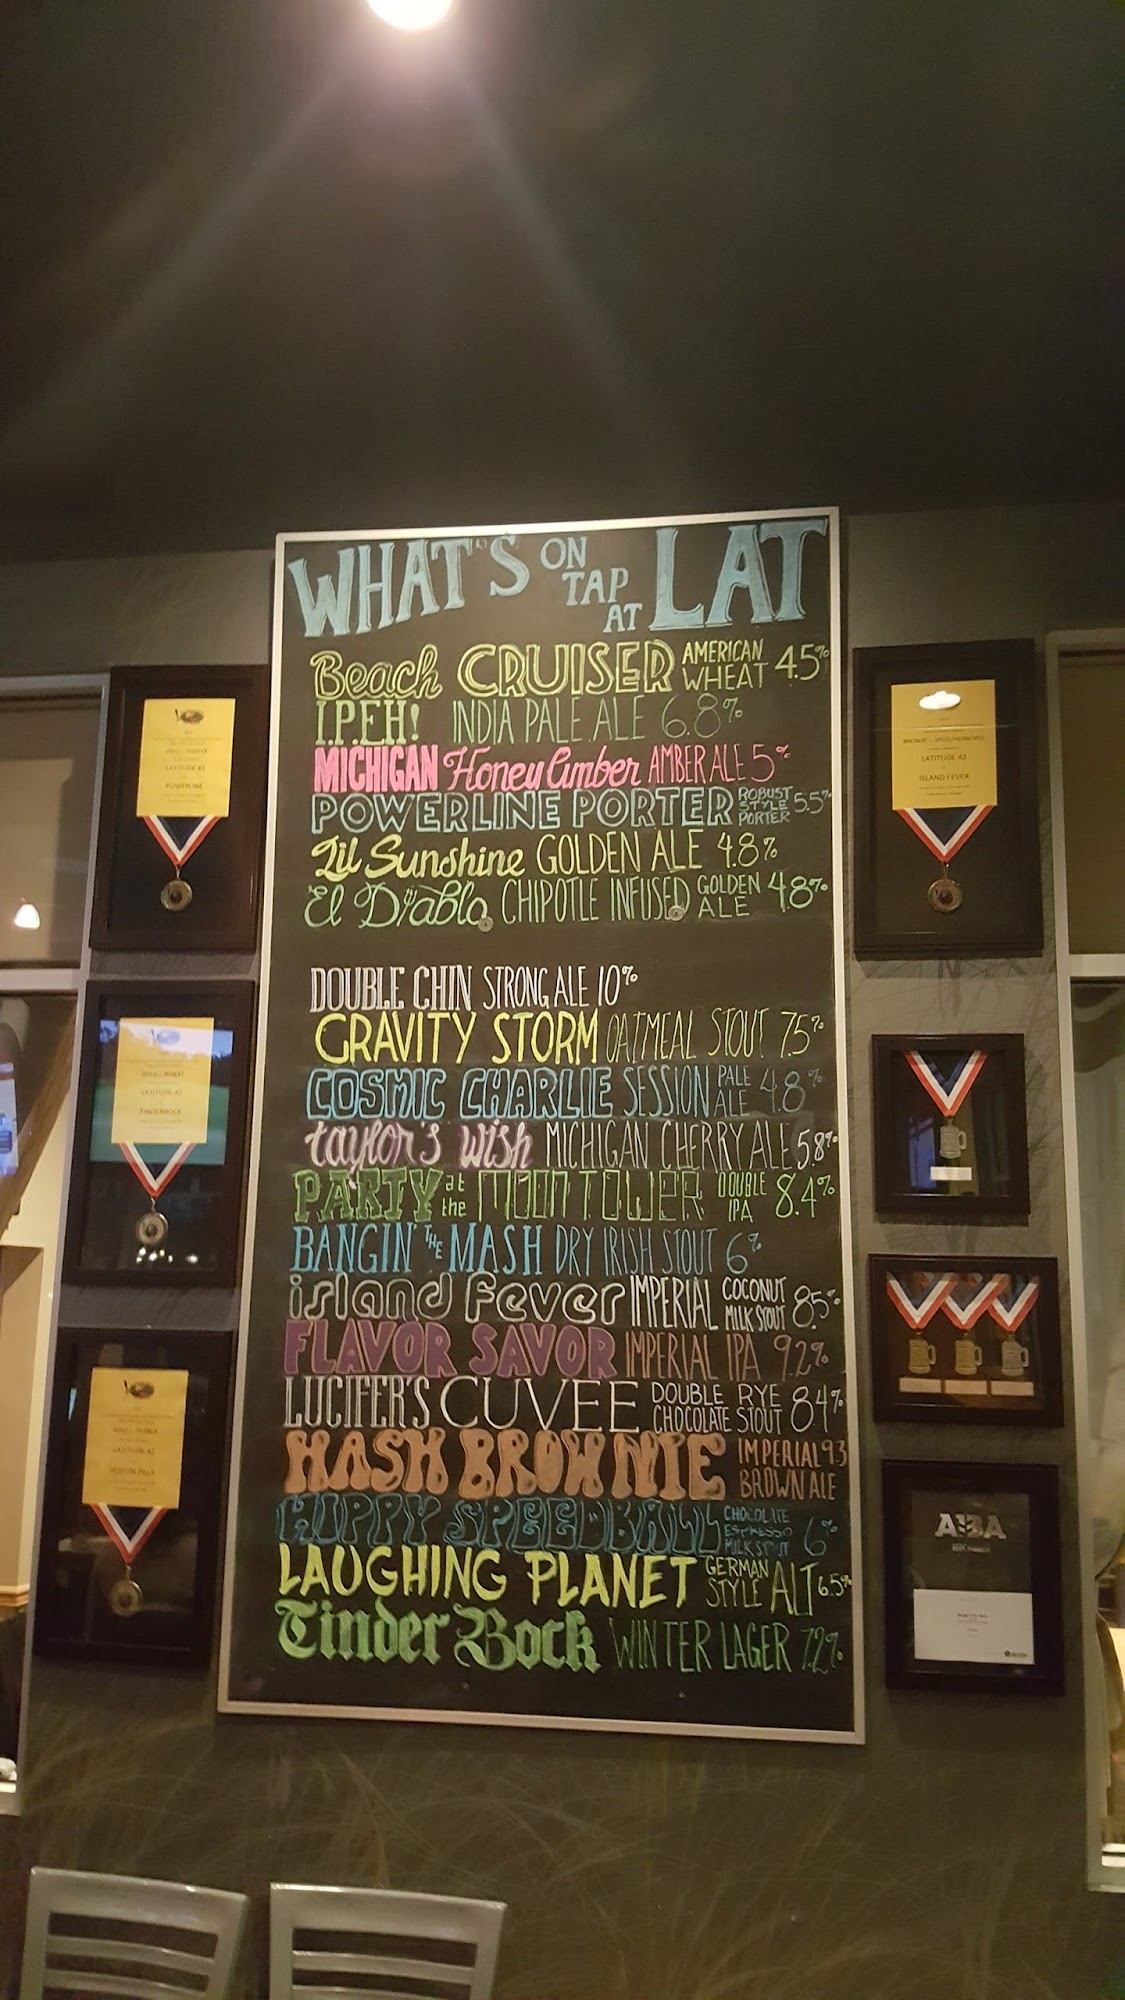 WHAT'S ON TAP AT LAT
Beach CRUISER AMERICAN WHEAT 4.5%
I.P.EH! INDIA PALE ALE 6.8%
MICHIGAN Honey Amber AMBER ALE 5%
POWERLINE PORTER ROBUST STYLE PORTER 5.5%
Lil Sunshine GOLDEN ALE 4.8%
El Diablo CHIPOTLE INFUSED GOLDEN ALE 4.8%
DOUBLE CHIN STRONG ALE 10%
GRAVITY STORM OATMEAL STOUT 7.5%
COSMIC CHARLIE SESSION PALE ALE 4.8%
taylor's wish MICHIGAN CHERRY ALE 5.8%
PARTY at the MOON TOWER DOUBLE IPA 8.4%
BANGIN' THE MASH DRY IRISH STOUT 6%
island Fever IMPERIAL COCONUT MILK STOUT 8.5%
FLAVOR SAVOR IMPERIAL IPA 9.2%
LUCIFER'S CUVEE DOUBLE RYE CHOCOLATE STOUT 8.4%
HASH BROWNIE IMPERIAL BROWN ALE 9.3
HIPPY SPEEDBALL CHOCOLATE ESPRESSO MILK STOUT 6%
LAUGHING PLANET GERMAN STYLE ALT 6.5%
Tinder Bock WINTER LAGER 7.2%
LATITUDE 42
POWERLINE
LATITUDE 42
TINDERBOCK
LATITUDE 42
LATITUDE 42
ISLAND FEVER